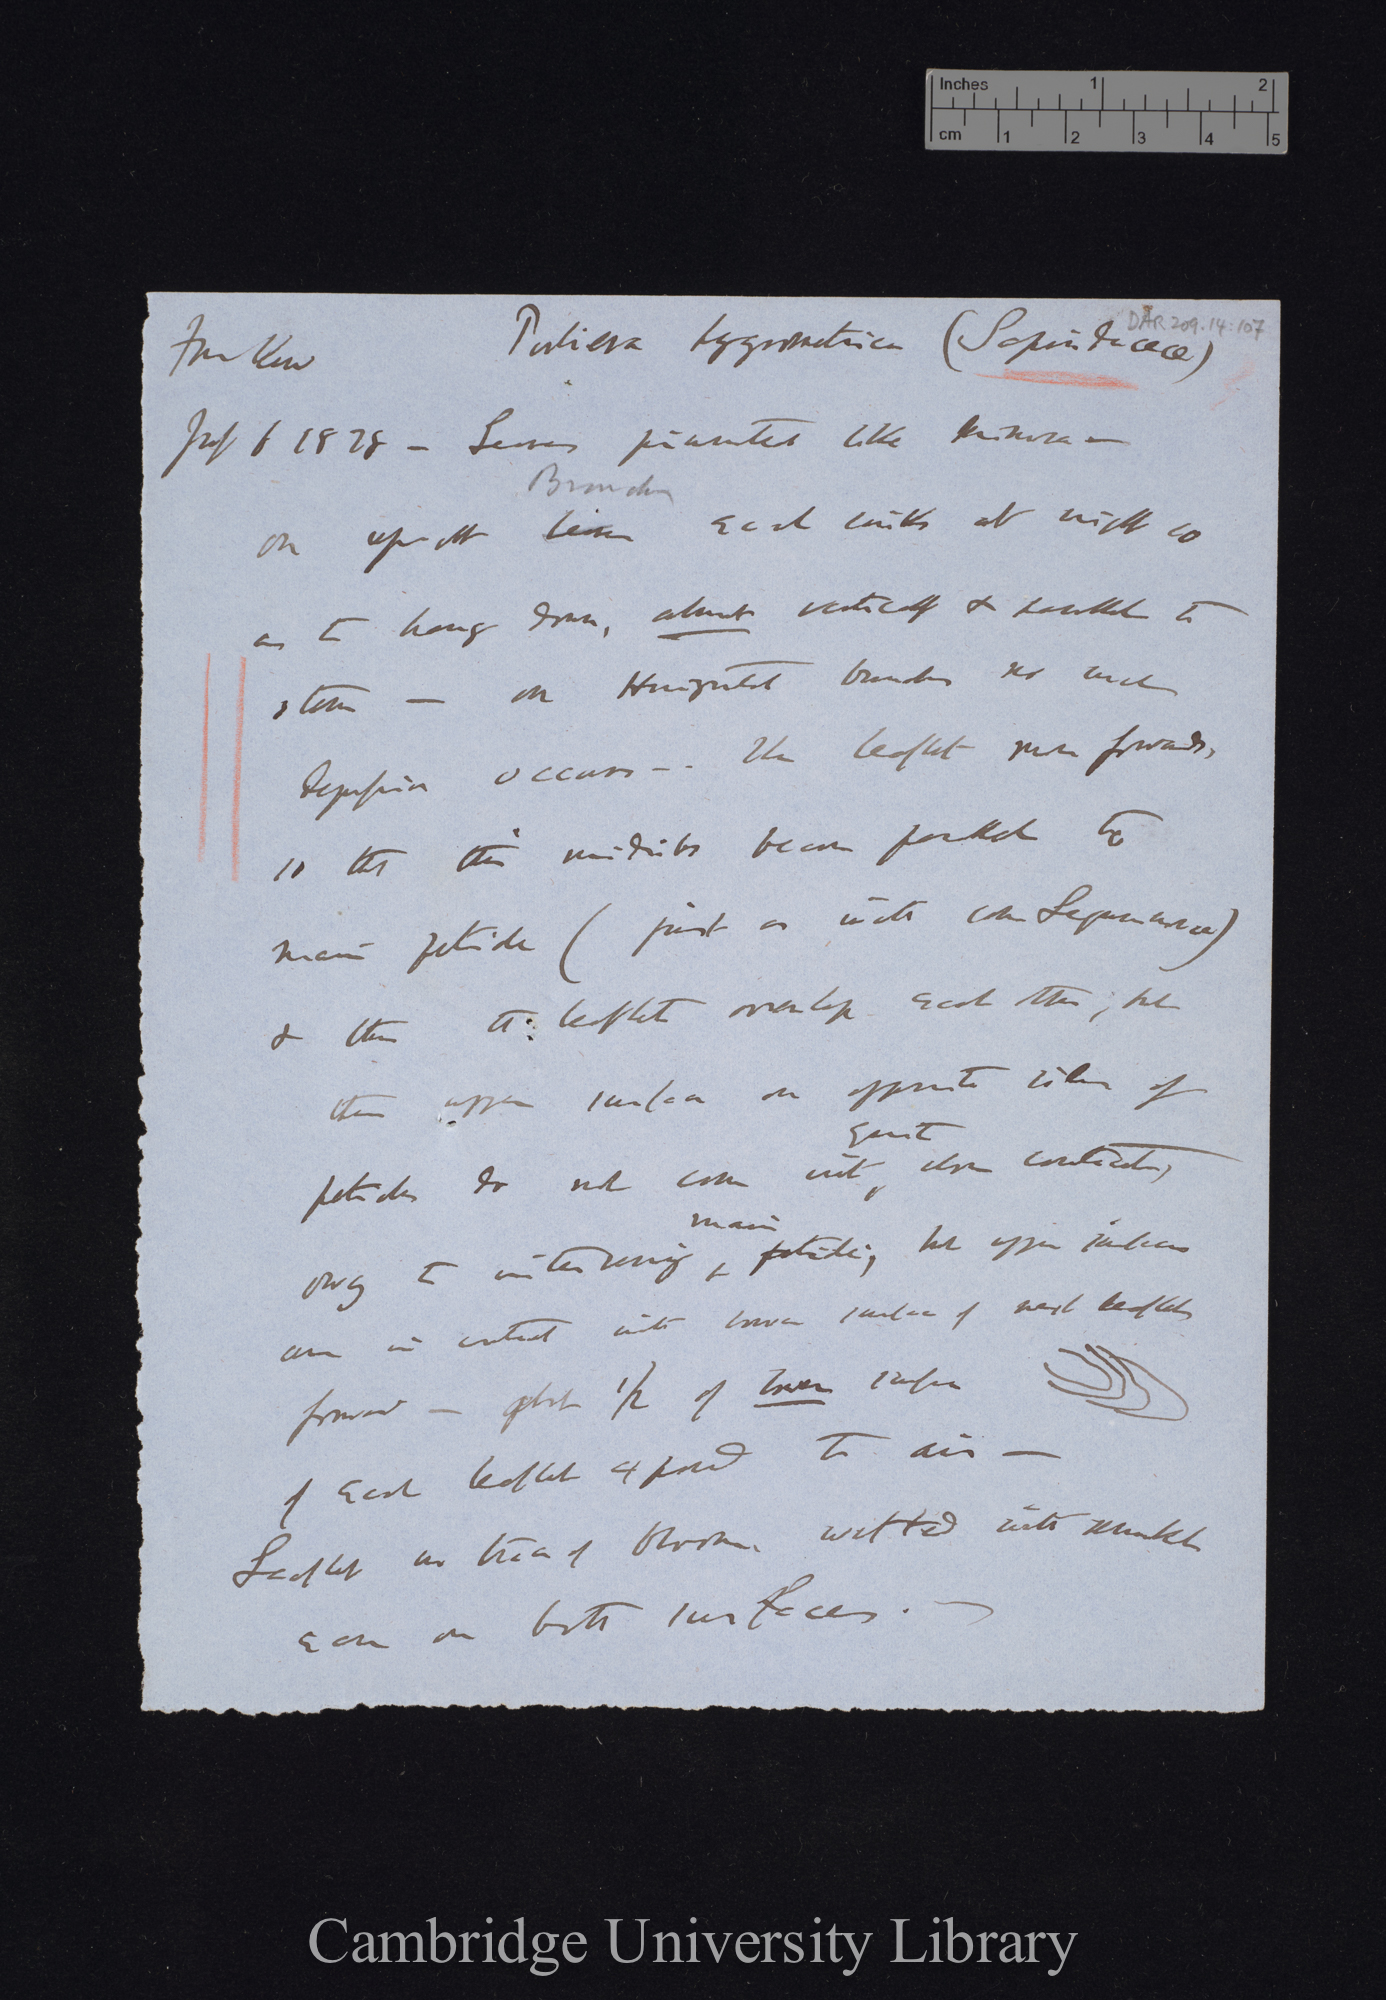 Inches 1 2
cm 1 2 3 4 5
DAR 209.14:107
From Kew Porliera hygrometrica (Sapindaceæ)
6 1878 — Leaves pinnated like Mimosa —
Branches
on upright each sinks at night so
as to hang down, almost vertically & parallel to
stem — on Horizontal branches no such
depression occurs —. The leaflets move forwards,
so that their midribs become parallel to
main petiole ( just as with some Leguminosæ)
& then the leaflets overlap each other, but
their upper surfaces on opposite sides of
quite
petioles do not come into close contact,
main
owing to intervening petiole; but upper surfaces
are in contact with lower surface of next leaflets
forward — about 1/2 of lower surface
of each leaflet exposed to air —
Leaflets no trace of bloom. wetted with
ease on both surfaces. —
Cambridge University Library